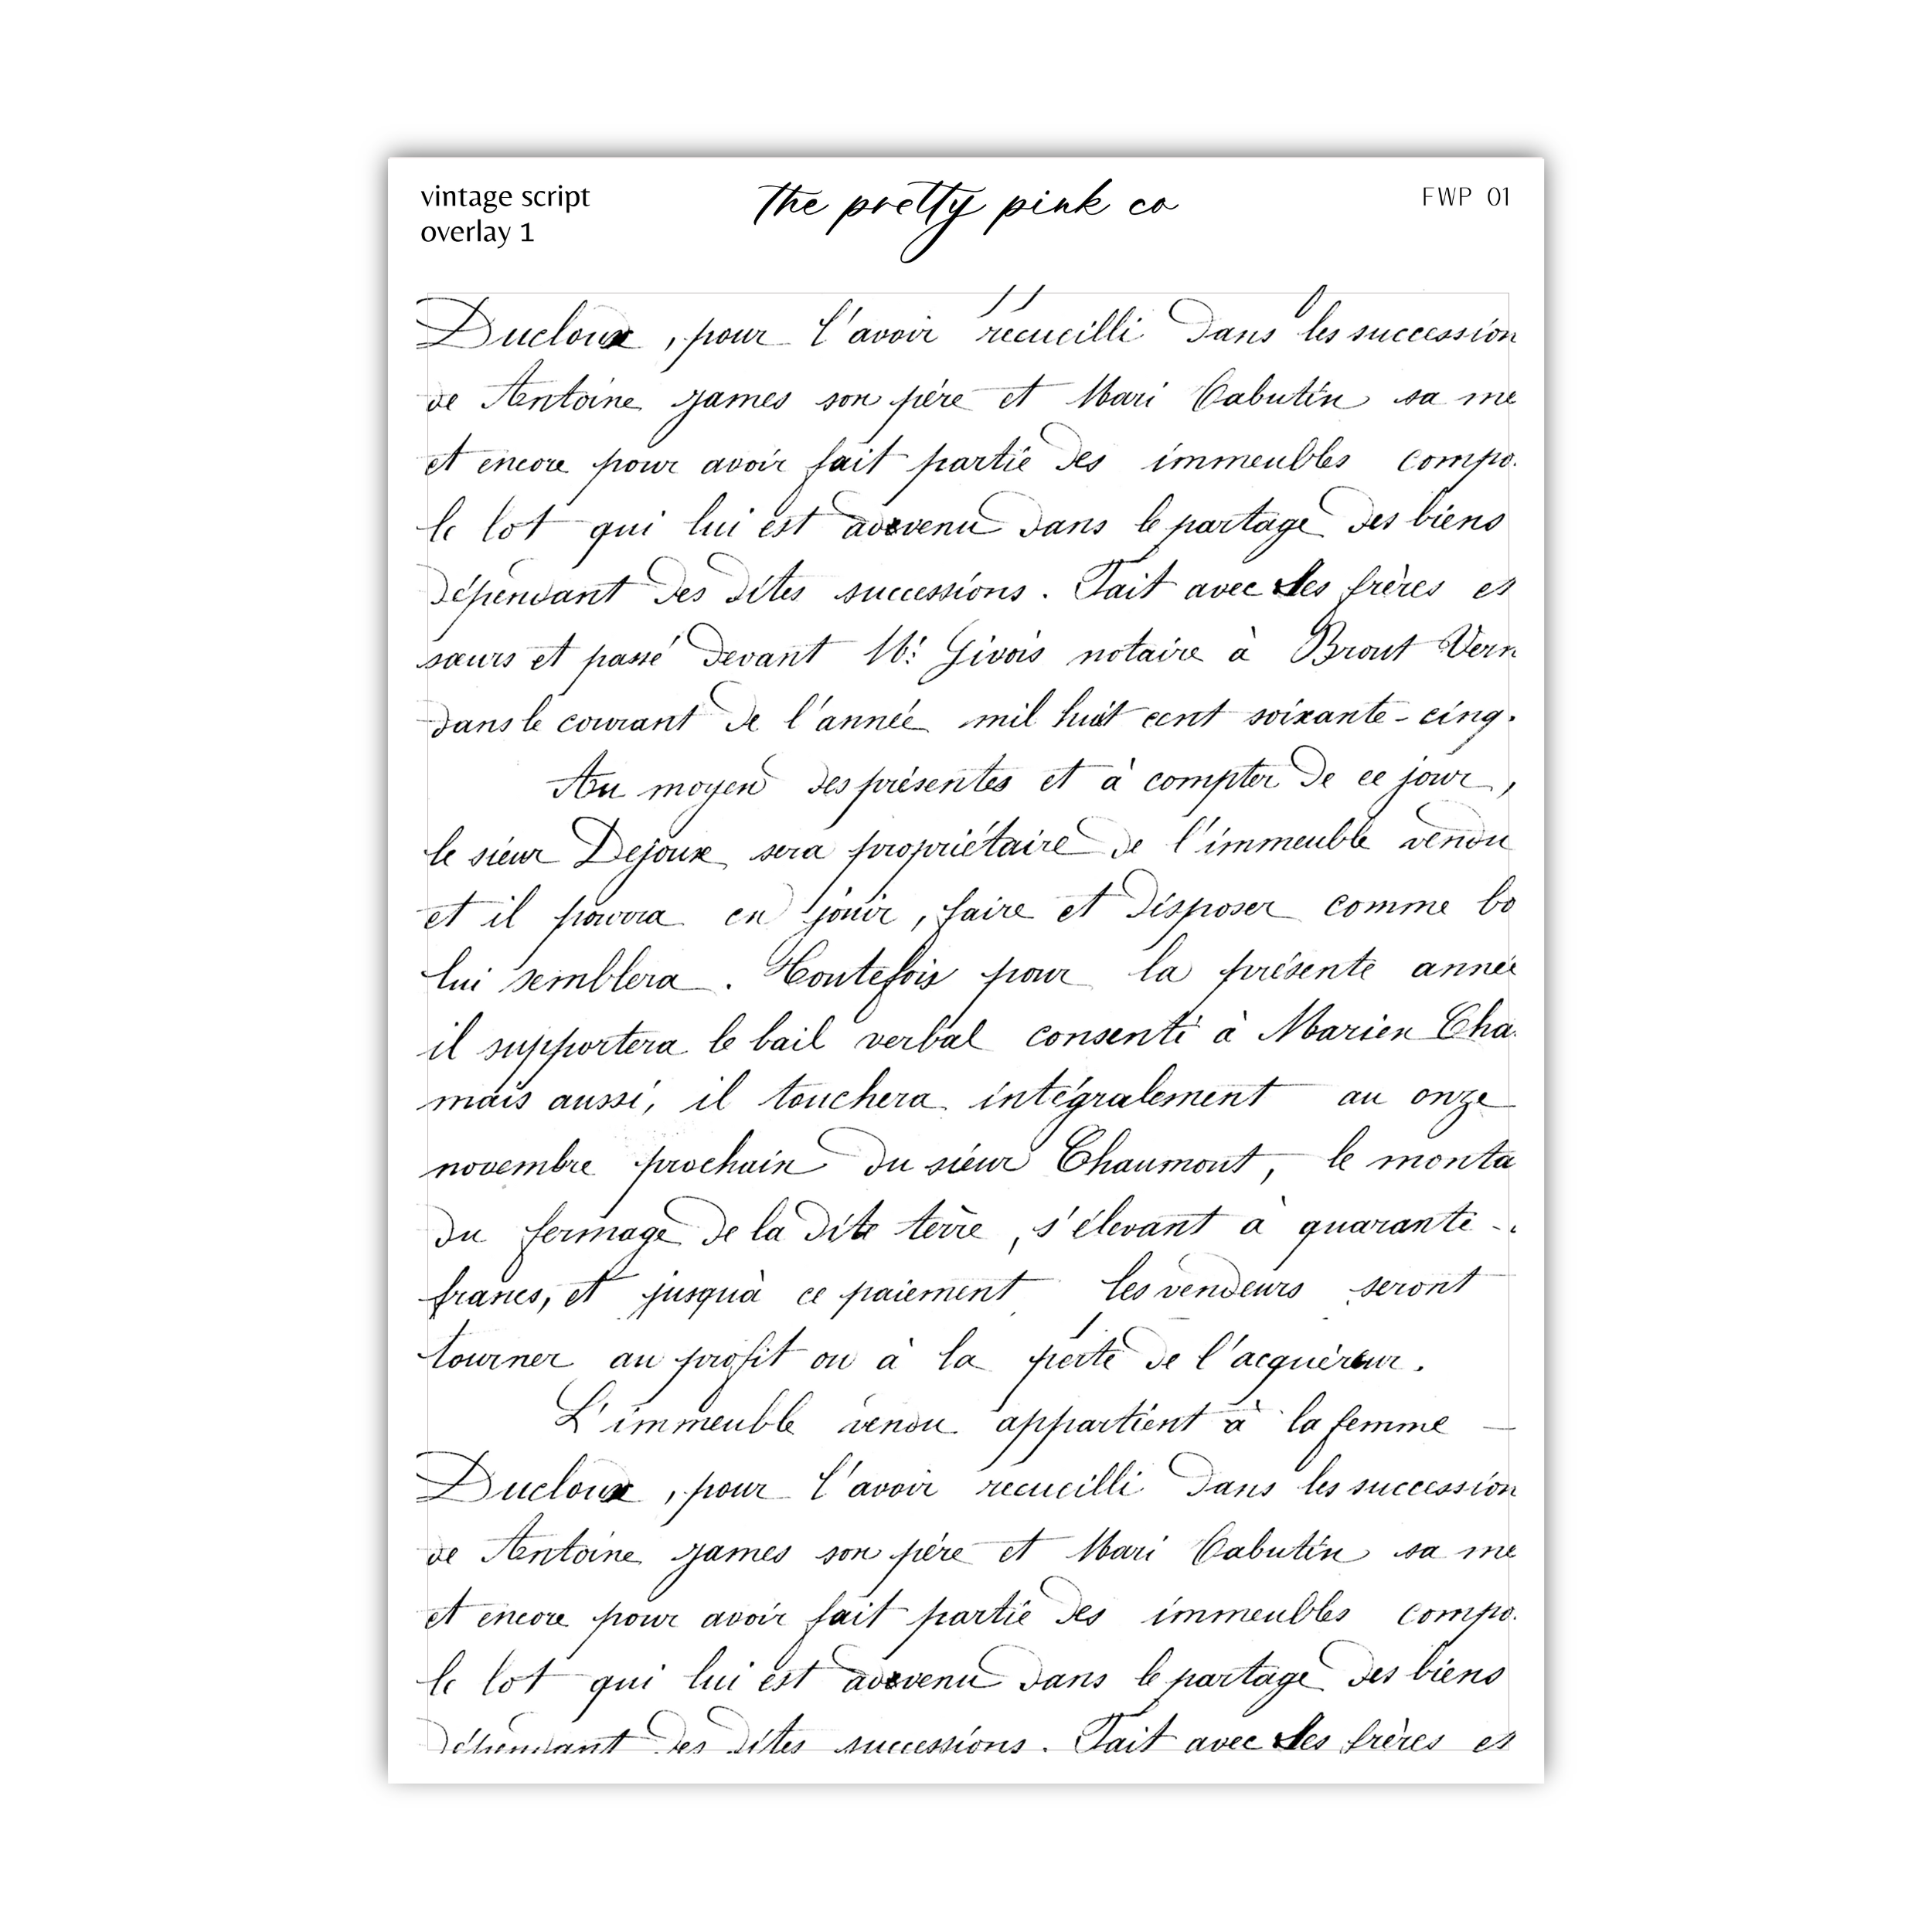 vintage script
overlay 1
the pretty pink co
FWP 01
Ducloux, pour l'avoir recueilli dans les succession
de Antoine James son père et Mari Cabutin sa me
et encore pour avoir fait partie des immeubles compo
le lot qui lui est advenu dans le partage des biens
dépendant des dites successions. Fait avec ses frères et
sœurs et passé devant Me Givois notaire à Brout Vern
dans le courant de l'année mil huit cent soixante-cinq.
Au moyen des présentes et à compter de ce jour,
le sieur Dejoux sera propriétaire de l'immeuble vendu
et il pourra en jouir, faire et disposer comme bo
lui semblera. Toutefois pour la présente année
il supportera le bail verbal consenti à Marien Cha
mais aussi, il touchera intégralement au onze
novembre prochain du sieur Chaumont, le monta
du fermage de la dite terre, s'élevant à quarante-
francs, et jusquà ce paiement les vendeurs seront
tourner au profit ou à la perte de l'acquéreur.
L'immeuble vendu appartient à la femme
Ducloux, pour l'avoir recueilli dans les succession
de Antoine James son père et Mari Cabutin sa me
et encore pour avoir fait partie des immeubles compo
le lot qui lui est advenu dans le partage des biens
dépendant des dites successions. Fait avec ses frères et